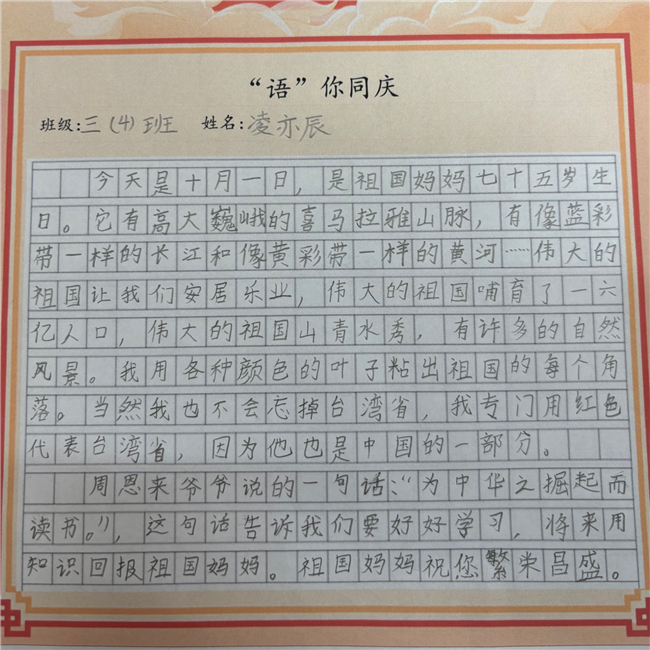 “语”你同庆
班级:三(4)班 姓名:凌亦辰
今天是十月一日，是祖国妈妈七十五岁生
日。它有高大巍峨的喜马拉雅山脉，有像蓝彩
带一样的长江和像黄彩带一样的黄河……伟大的
祖国让我们安居乐业，伟大的祖国哺育了一六
亿人口，伟大的祖国山青水秀，有许多的自然
风景。我用各种颜色的叶子粘出祖国的每个角
落。当然我也不会忘掉台湾省，我专门用红色
代表台湾省，因为他也是中国的一部分。
周恩来爷爷说的一句话：“为中华之掘起而
读书。”，这句话告诉我们要好好学习，将来用
知识回报祖国妈妈。祖国妈妈祝您繁荣昌盛。